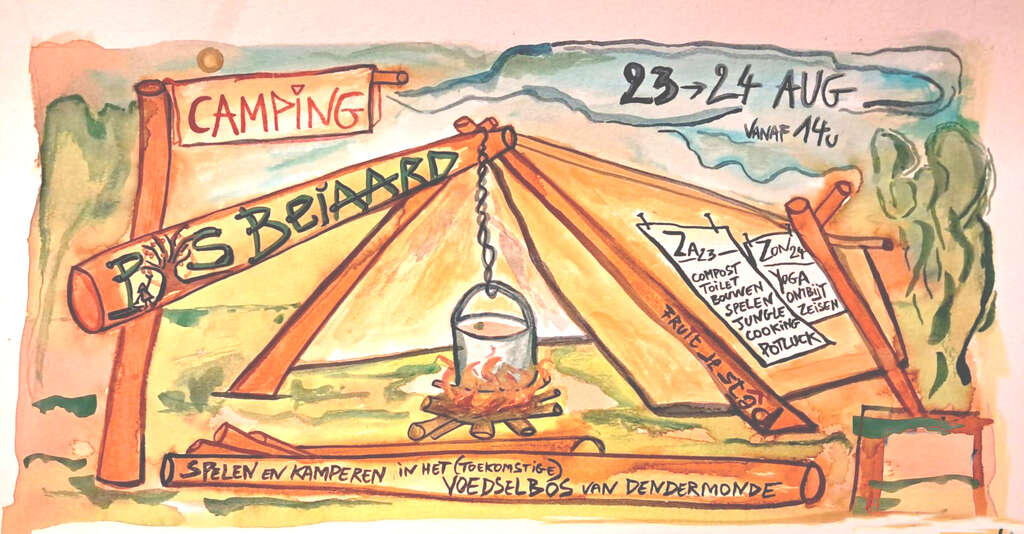 CAMPING
BOS BEIAARD
23 → 24 AUG
VANAF 14u
ZA 23
COMPOST
TOILET
BOUWEN
SPELEN
JUNGLE
COOKING
POTLUCK
ZON 24
YOGA
ONTBIJT
ZEISEN
FRUIT de stad
SPELEN EN KAMPEREN IN HET (TOEKOMSTIGE)
VOEDSELBOS VAN DENDERMONDE